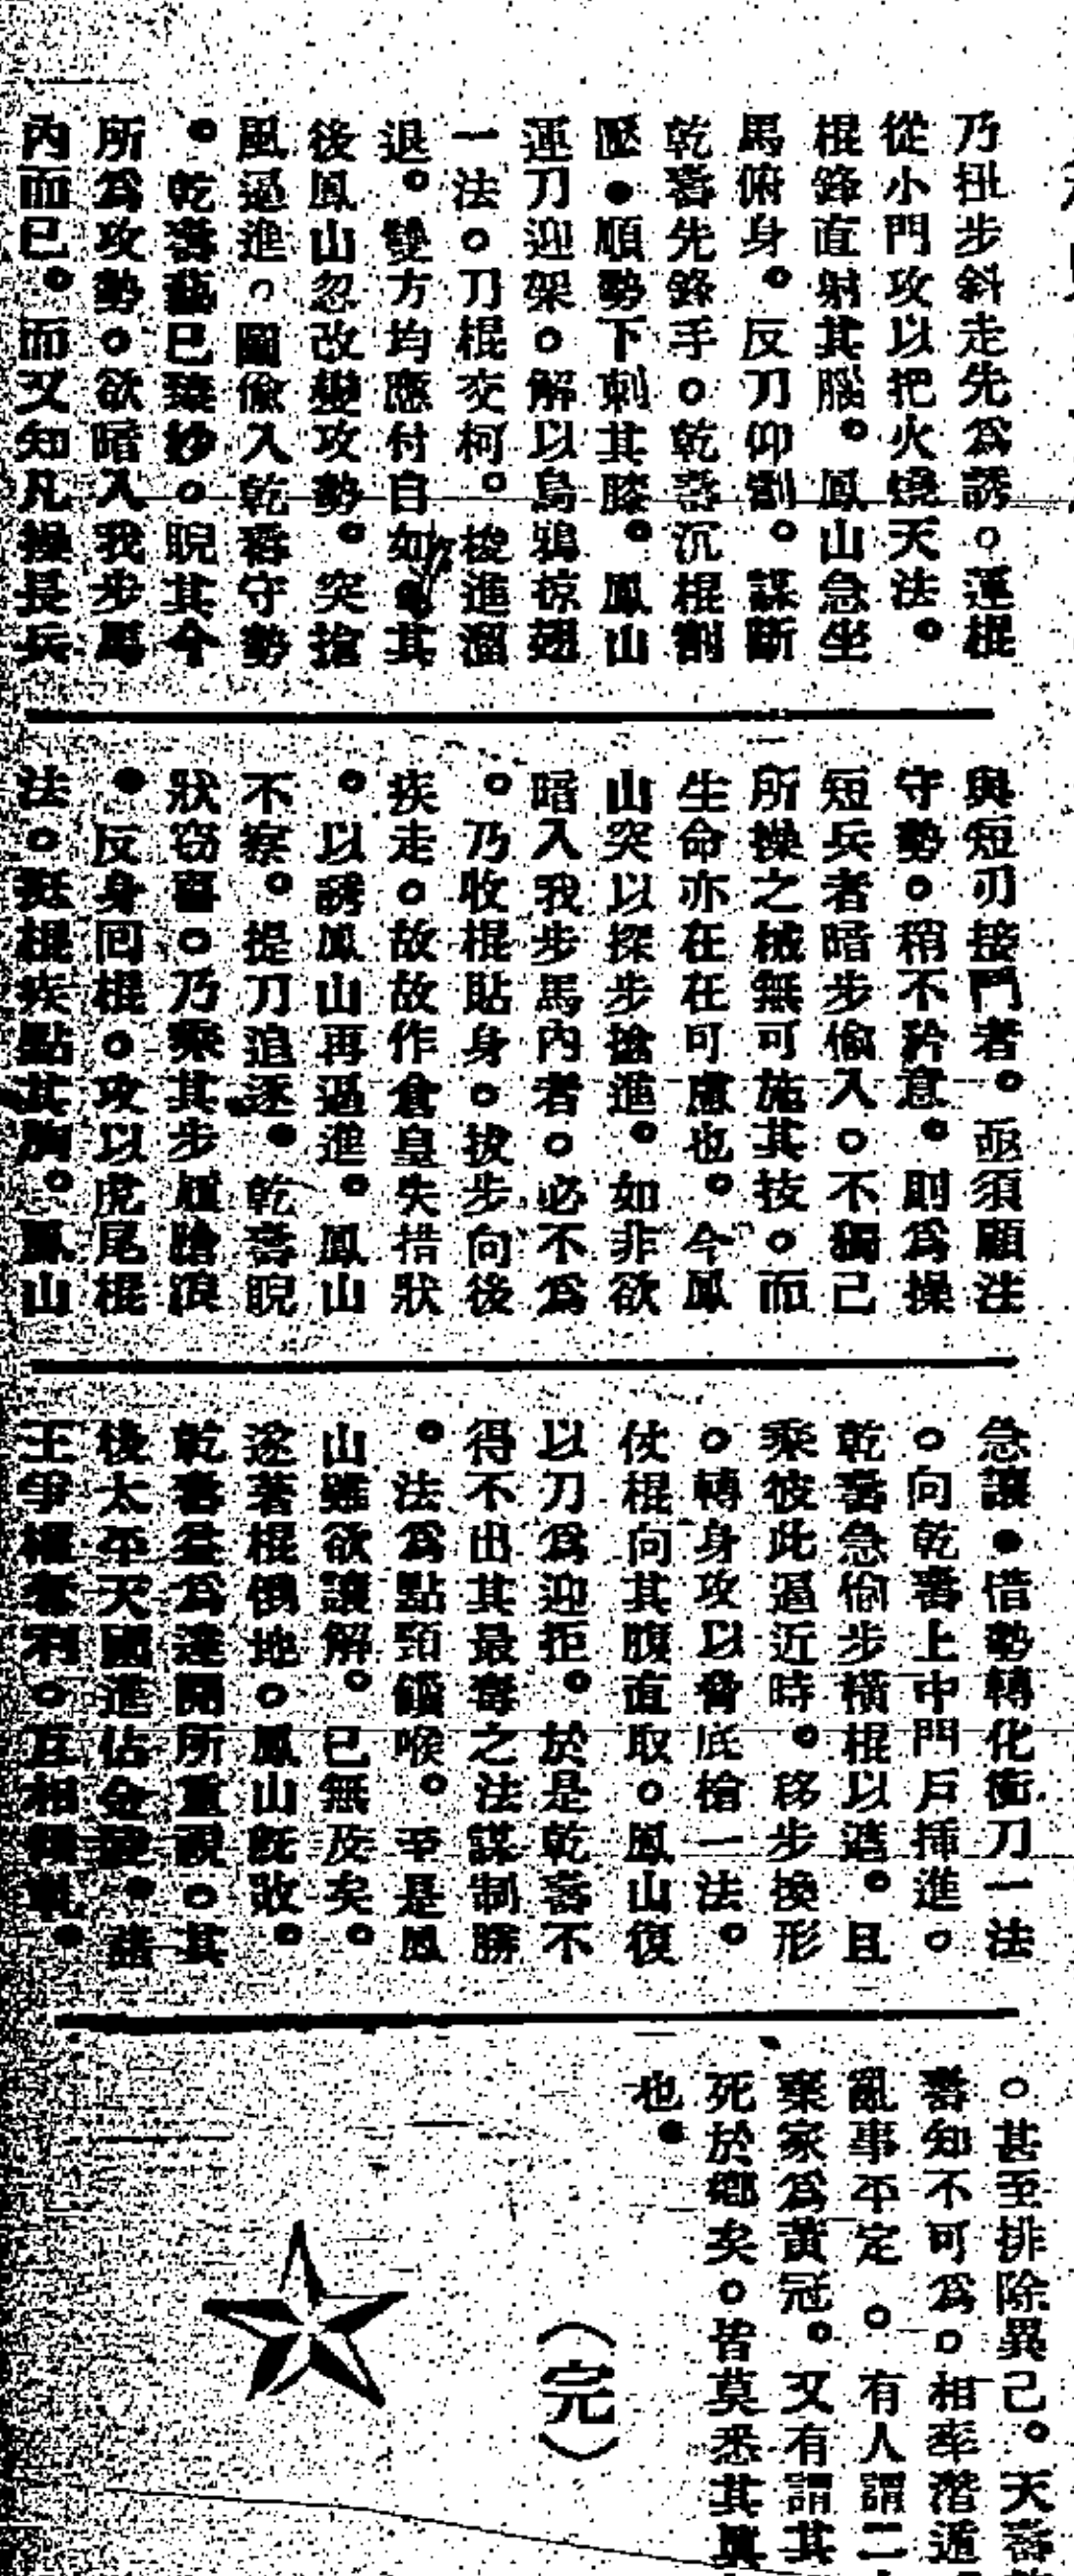 乃扭步斜走先爲誘。運棍
從小門攻以把火燒天法。
棍鋒直射其腦。鳳山急坐
馬俯身。反刀仰割。謀斷
乾壽先鋒手。乾壽沉棍割
壓。順勢下刺其膝。鳳山
運刀迎架。解以烏鴉掠翅
一法。刀棍交柯。梭進溜
退。雙方均應付自如。其
後鳳山忽改變攻勢。突搶
風逼進。圖偸入乾壽守勢
。乾壽藝已臻妙。睨其今
所爲攻勢。欲暗入我步馬
內而已。而又知凡操長兵
與短刃接鬥者。亟須顧注
守勢。稍不矜意。則爲操
短兵者暗步偸入。不獨己
所操之械無可施其技。而
生命亦在在可慮也。今鳳
山突以探步搶進。如非欲
暗入我步馬內者。必不爲
。乃收棍貼身。拔步向後
疾走。故故作倉皇失措狀
。以誘鳳山再逼進。鳳山
不察。提刀追逐。乾壽睨
狀窃喜。乃乘其步履蹌踉
。反身囘棍。攻以虎尾棍
法。挺棍疾點其胸。鳳山
急讓。借勢轉化衝刀一法
。向乾壽上中門戶揷進。
乾壽急偷步橫棍以遮。且
乘彼此逼近時。移步換形
。轉身攻以脅底槍一法。
仗棍向其腹直取。鳳山復
以刀爲迎拒。於是乾壽不
得不出其最毒之法謀制勝
。法爲點頸鎖喉。至是鳳
山雖欲讓解。已無及矣。
遂著棍俄地。鳳山旣敗。
乾壽益爲達開所重視。其
後太平天國進佔金陵。諸
王爭權奪利。互相傾軋。
。甚至排除異己。天壽
壽知不可爲。相率潛遁
亂事平定。有人謂二
棄家爲黃冠。又有謂其
死於鄉矣。皆莫悉其眞
也。
（完）